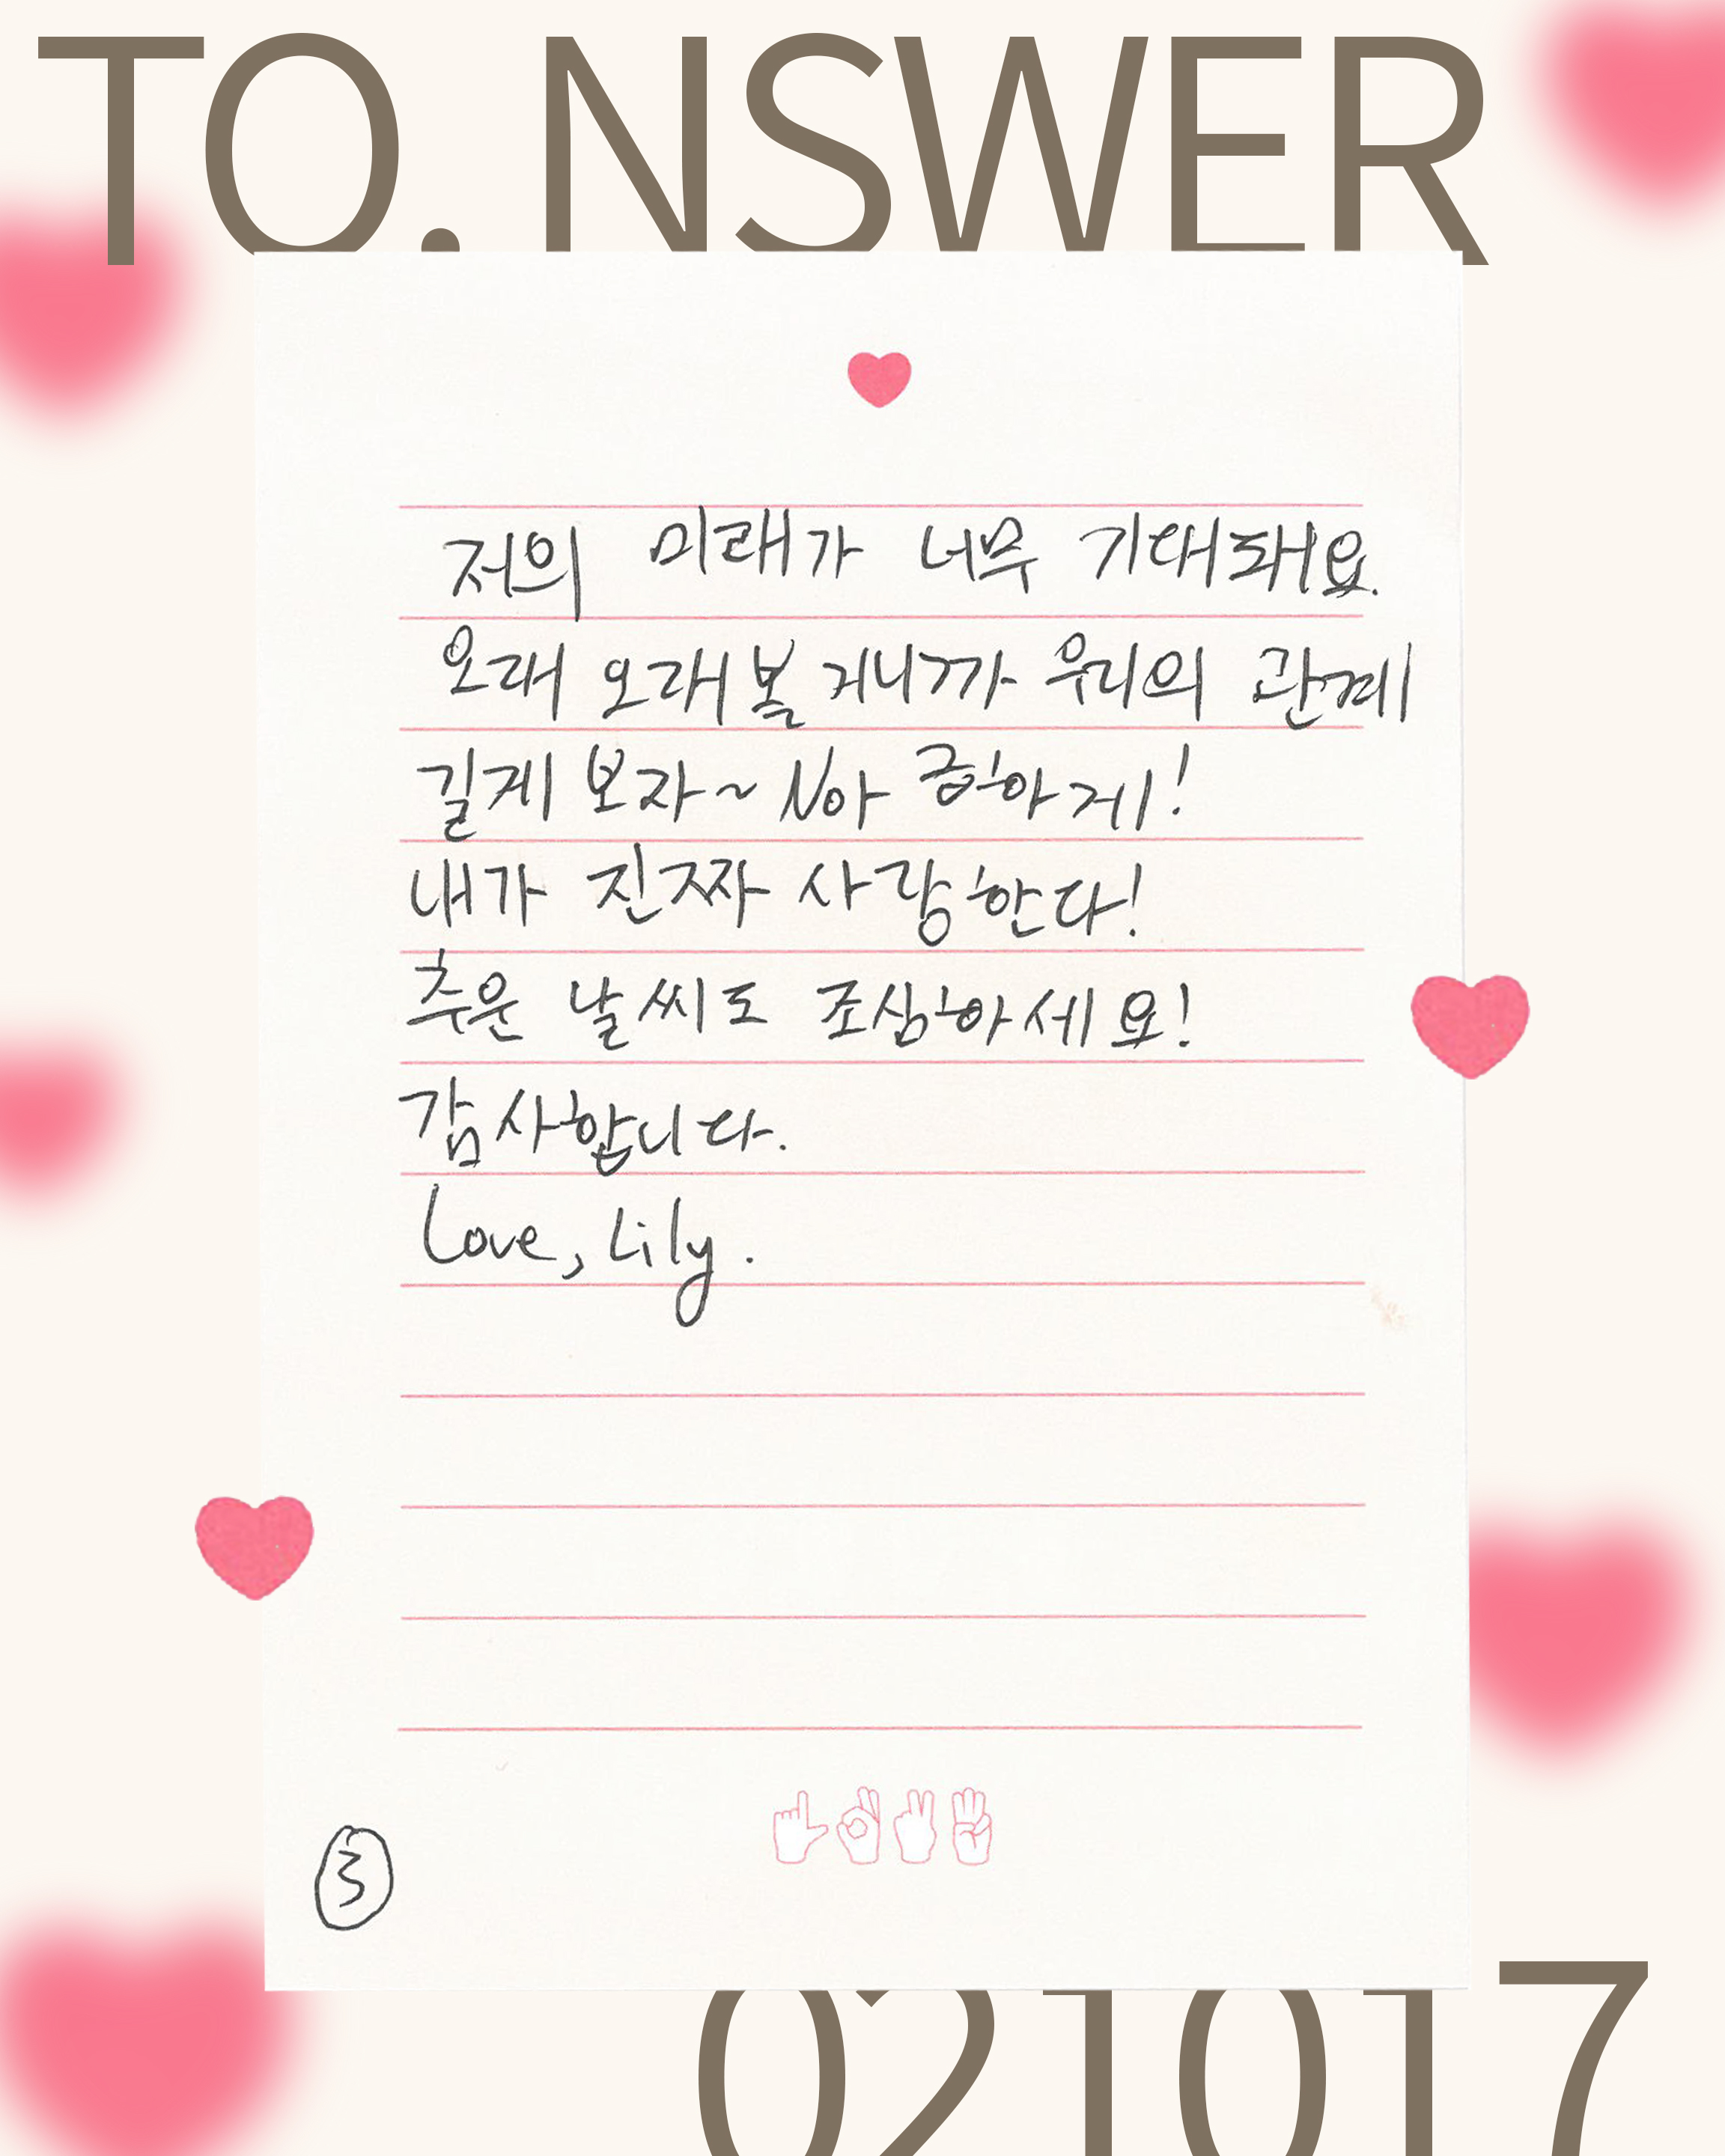 TO. NSWER
저의 미래가 너무 기대돼요.
오래 오래 볼 거니까 우리의 관계
길게 보자~ No아 급하게!
내가 진짜 사랑한다!
추운 날씨도 조심하세요!
감사합니다.
Love, Lily.
3
021017